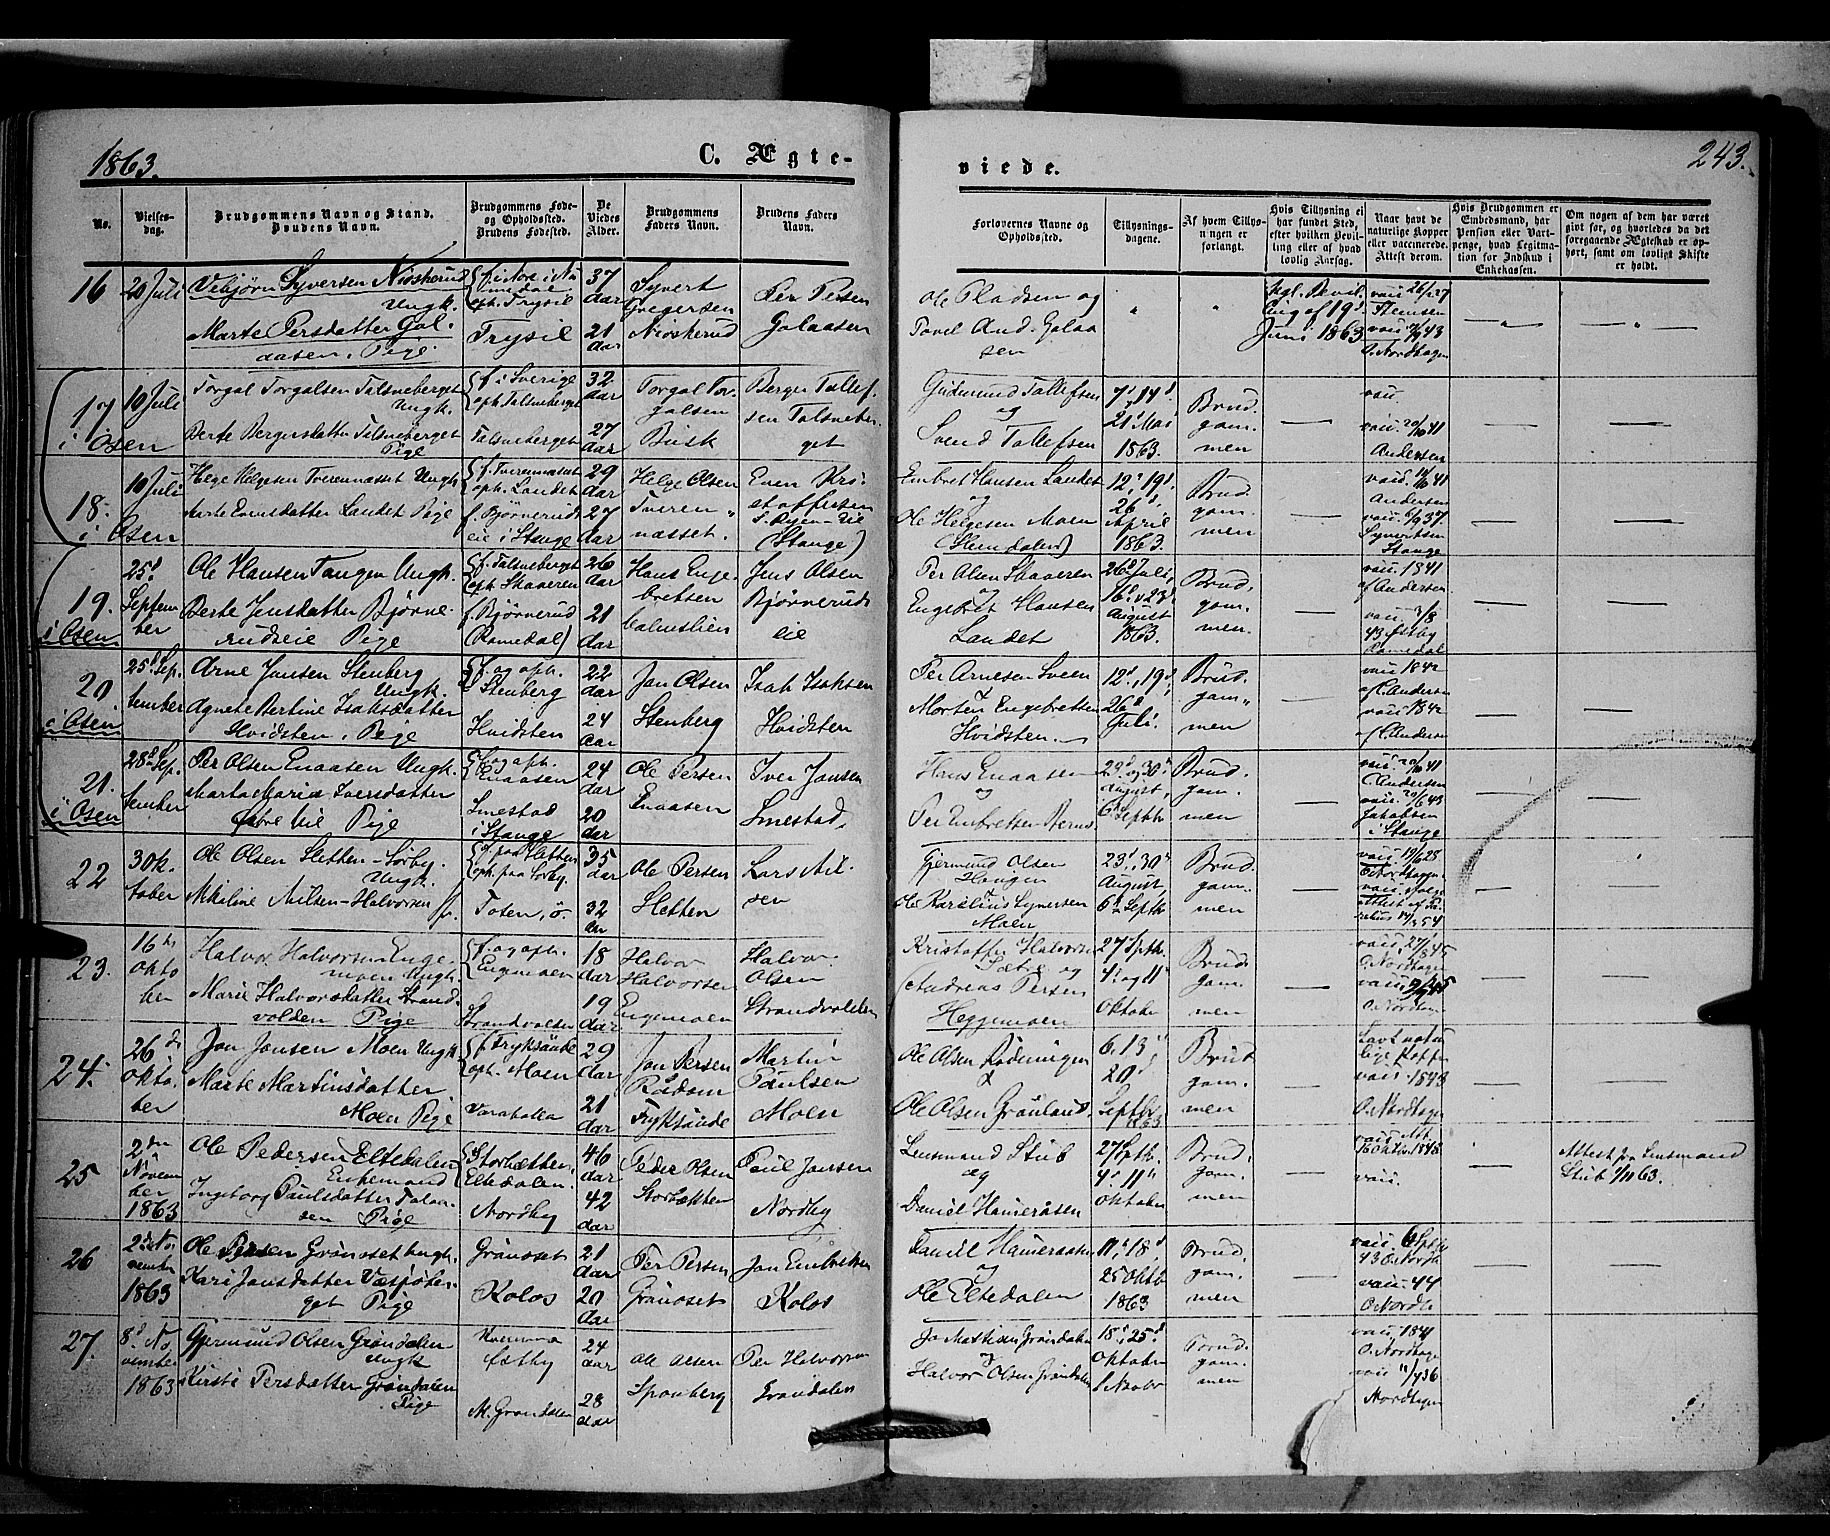 1863.
C. Ægte-
viede.
243.
No.
Vielses-
dag.
Brudgommens Navn og Stand.
Brudens Navn.
Brudgommens Føde-
og Opholdssted.
Brudens Fødested.
De
Viedes
Alder.
Brudgommens
Faders Navn.
Brudens Faders
Navn.
Forlovernes Navne og
Opholdssted.
Tillysnings-
dagene.
Af hvem Tillys-
ningen er
forlangt.
Hvis Tillysning ei
har fundet Sted,
efter hvilken Bevil-
ling eller af hvad
lovlig Aarsag.
Naar havt de
naturlige Kopper
eller vaccinerede.
Attest derom.
Hvis Brudgommen er
Embedsmand, har
Pension eller Vart-
penge, hvad Legitima-
tion for Indskud i
Enkekassen.
Om nogen af dem har været
gift før, og hvorledes da det
foregaaende Ægteskab er op-
hørt, samt om lovligt Skifte
er holdt.
16
20 Juli
Vebjørn Syversen Niøskerud
Ungk.
Marte Persdatter Gal-
aasen, Pige
oph. Trysil
Trysil
37
Aar
21
Aar
Syvert
Gregersen
Niøskerud
Per Persen
Galaasen
Ole Pladsen og
Tavel And. Galaa
sen
Kgl. Bevil.
ling af 19d
Juni 1863
O. Nordhagen
17
i Osen
10 Juli
Torgal Torgalsen Talsneberget
Ungk.
Berte Bergersdatter Talsneberget
Pige
f. i Sverige
oph. Talsneberget
Talsneberget
32
Aar
27
Aar
Torgal Tor-
galsen
Busk
Berger Tollef-
sen Talsneber-
get
Gudmund Tollefsen
og
Svend Tollefsen
7d 14d
21d Mai
1863.
Brud-
gom-
men
vac.
Andersen
18.
i Osen
10 Juli
Helge Helgesen Tverennæsset Ungk.
Marte Evensdatter Landet Pige
f. Tverennæsset
oph. Landet
f. Bjørnerud-
eie i Stange
29
Aar
27
Aar
Helge Olsen
Tveren-
næsset.
Even Kri-
stoffersen
(Stange)
Embret Hansen Landet
og
Ole Helgesen Moen
12, 19d
26d
April
1863.
Brud-
gom-
men
Andersen
Syvertsen
Stange
19.
i Osen
25d
Septem
ber
Ole Hansen Tangen Ungk.
Berte Jensdatter Bjørne-
rudseie Pige
f. Talsneberget
oph. Skaaeren
f. Bjørnerud
(Romedal)
26
Aar
21
Aar
Hans Enge-
bretsen
Jens Olsen
Bjørneruds
eie
Per Olsen Skaaeren
og
Engebret Hansen
Landet
26d Juli,
16d 23d
August
1863.
Brud-
gom-
men.
vac. 1841
af Andersen
vac. 3/8
43 Østby
Romedal
20
i Osen
25d Sep.
tember
Arne Jansen Stenberg
Ungk.
Agnete Bertine Isaksdatter
Hvidsten, Pige
f. og oph.
Stenberg
Hvidsten
22
Aar
24
Aar
Jan Olsen
Stenberg
Isak Isaksen
Hvidsten
Per Arnesen Sveen
Morten Engebretsen
Hvidsten.
12d, 19d,
26d
Juli.
Brud-
gom-
men
vac. 1842
af C. Andersen
vac. 1842
af C. Andersen
21.
i Osen
28d Sep.
tember
Per Olsen Enaasen Ungk.
Marta Maria Iversdatter
Pige
f. og oph.
Enaasen
Smestad
i Stange
24
Aar
20
Aar
Ole Persen
Enaasen
Iver Jansen
Smestad,
Hans Enaasen
og
23d og 30d
August,
6d Septb.
Brud-
gom-
men
C. Andersen
Jakobsen
i Stange
22
3 Ok-
tober
Ole Olsen Sletten-Sørby.
Ungk.
Mikaline Nilsen-Halvorsen
f. paa Sletten
oph. paa Sørby.
Toten, ö.
35
Aar
32
Aar
Ole Persen
Sletten
Lars Nil-
sen
Gjermund Olsen
Haugen
Ole Karelius Syversen
Moen
23d, 30d
August,
6d Septb
Brud-
gom-
men
23.
16de
Okto
ber
Halvor Halvorsen Enge-
moen Ungk.
Marie Halvorsdatter Strand-
volden Pige
f. og oph.
Engemoen
Strandvolden
18
Aar
19
Aar
Halvor
Halvorsen
Engemoen
Halvor
Olsen
Strandvolden
Kristoffer Halvorsen
Sætre og
Andreas Persen
Heggemoen
27 Septb.
4d og 11d
Oktober
Brud-
gom-
men
O. Nordhagen
24.
26de
Okto-
ber
Jon Jonsen Moen Ungk.
Marte Martinsdatter
Moen Pige
f. Fryksände
oph. Moen
29
Aar
21
Aar
Jon Persen
Rådom
Fryksände
Martin
Paulsen
Moen
Ole Olsen Rødningen
&
Ole Olsen Grønland.
6, 13d
20d
Septbr
1863
Brud-
gom-
men
havt natur
lige Kopp.
vac. 1843
O. Nordhagen
25
2den
Novem
ber
1863
Ole Pedersen Eltedalen
Enkemand
Ingeborg Paulsdatter Galaa-
sen Pige
Storbækken
Eltedalen.
Nordby
46
Aar
42
Aar
Peder Olsen
Storbækken
Paul Jansen
Nordby
Lensmand Stub
og
Daniel Hameråsen
27 Septb.
4d 11d
Oktober
Brud-
gom-
men
vac.
Attest fra Lensmand
Stub 1/11 63.
26
2d No-
vember
1863
Ole Persen Grønoset Ungk.
Kari Jansdatter Vestjøber-
get Pige
Grønoset
Kolos
21
Aar
20
Aar
Per Persen
Grønoset
Jan Embretsen
Kolos
Daniel Hameraasen
og
Ole Eltedalen
11d, 18d,
25 Oktb
1863
Brud-
gom-
men
vac. 44
O. Nordh.
27.
8d No
vember
1863
Gjermund Olsen Grøndalen
Ungk
Kirsti Persdatter Grøndalen
Pige
N. Grøndalen
24
Aar
28
Aar
Ole Olsen
Spanberg
Per Halvorsen
Grøndalen
og
Halvor Olsen Grøndalen
18d, 25d
Oktober
1 Novbr
Brud-
gom-
men
vac. 1841
O. Nordhagen
Nordhagen